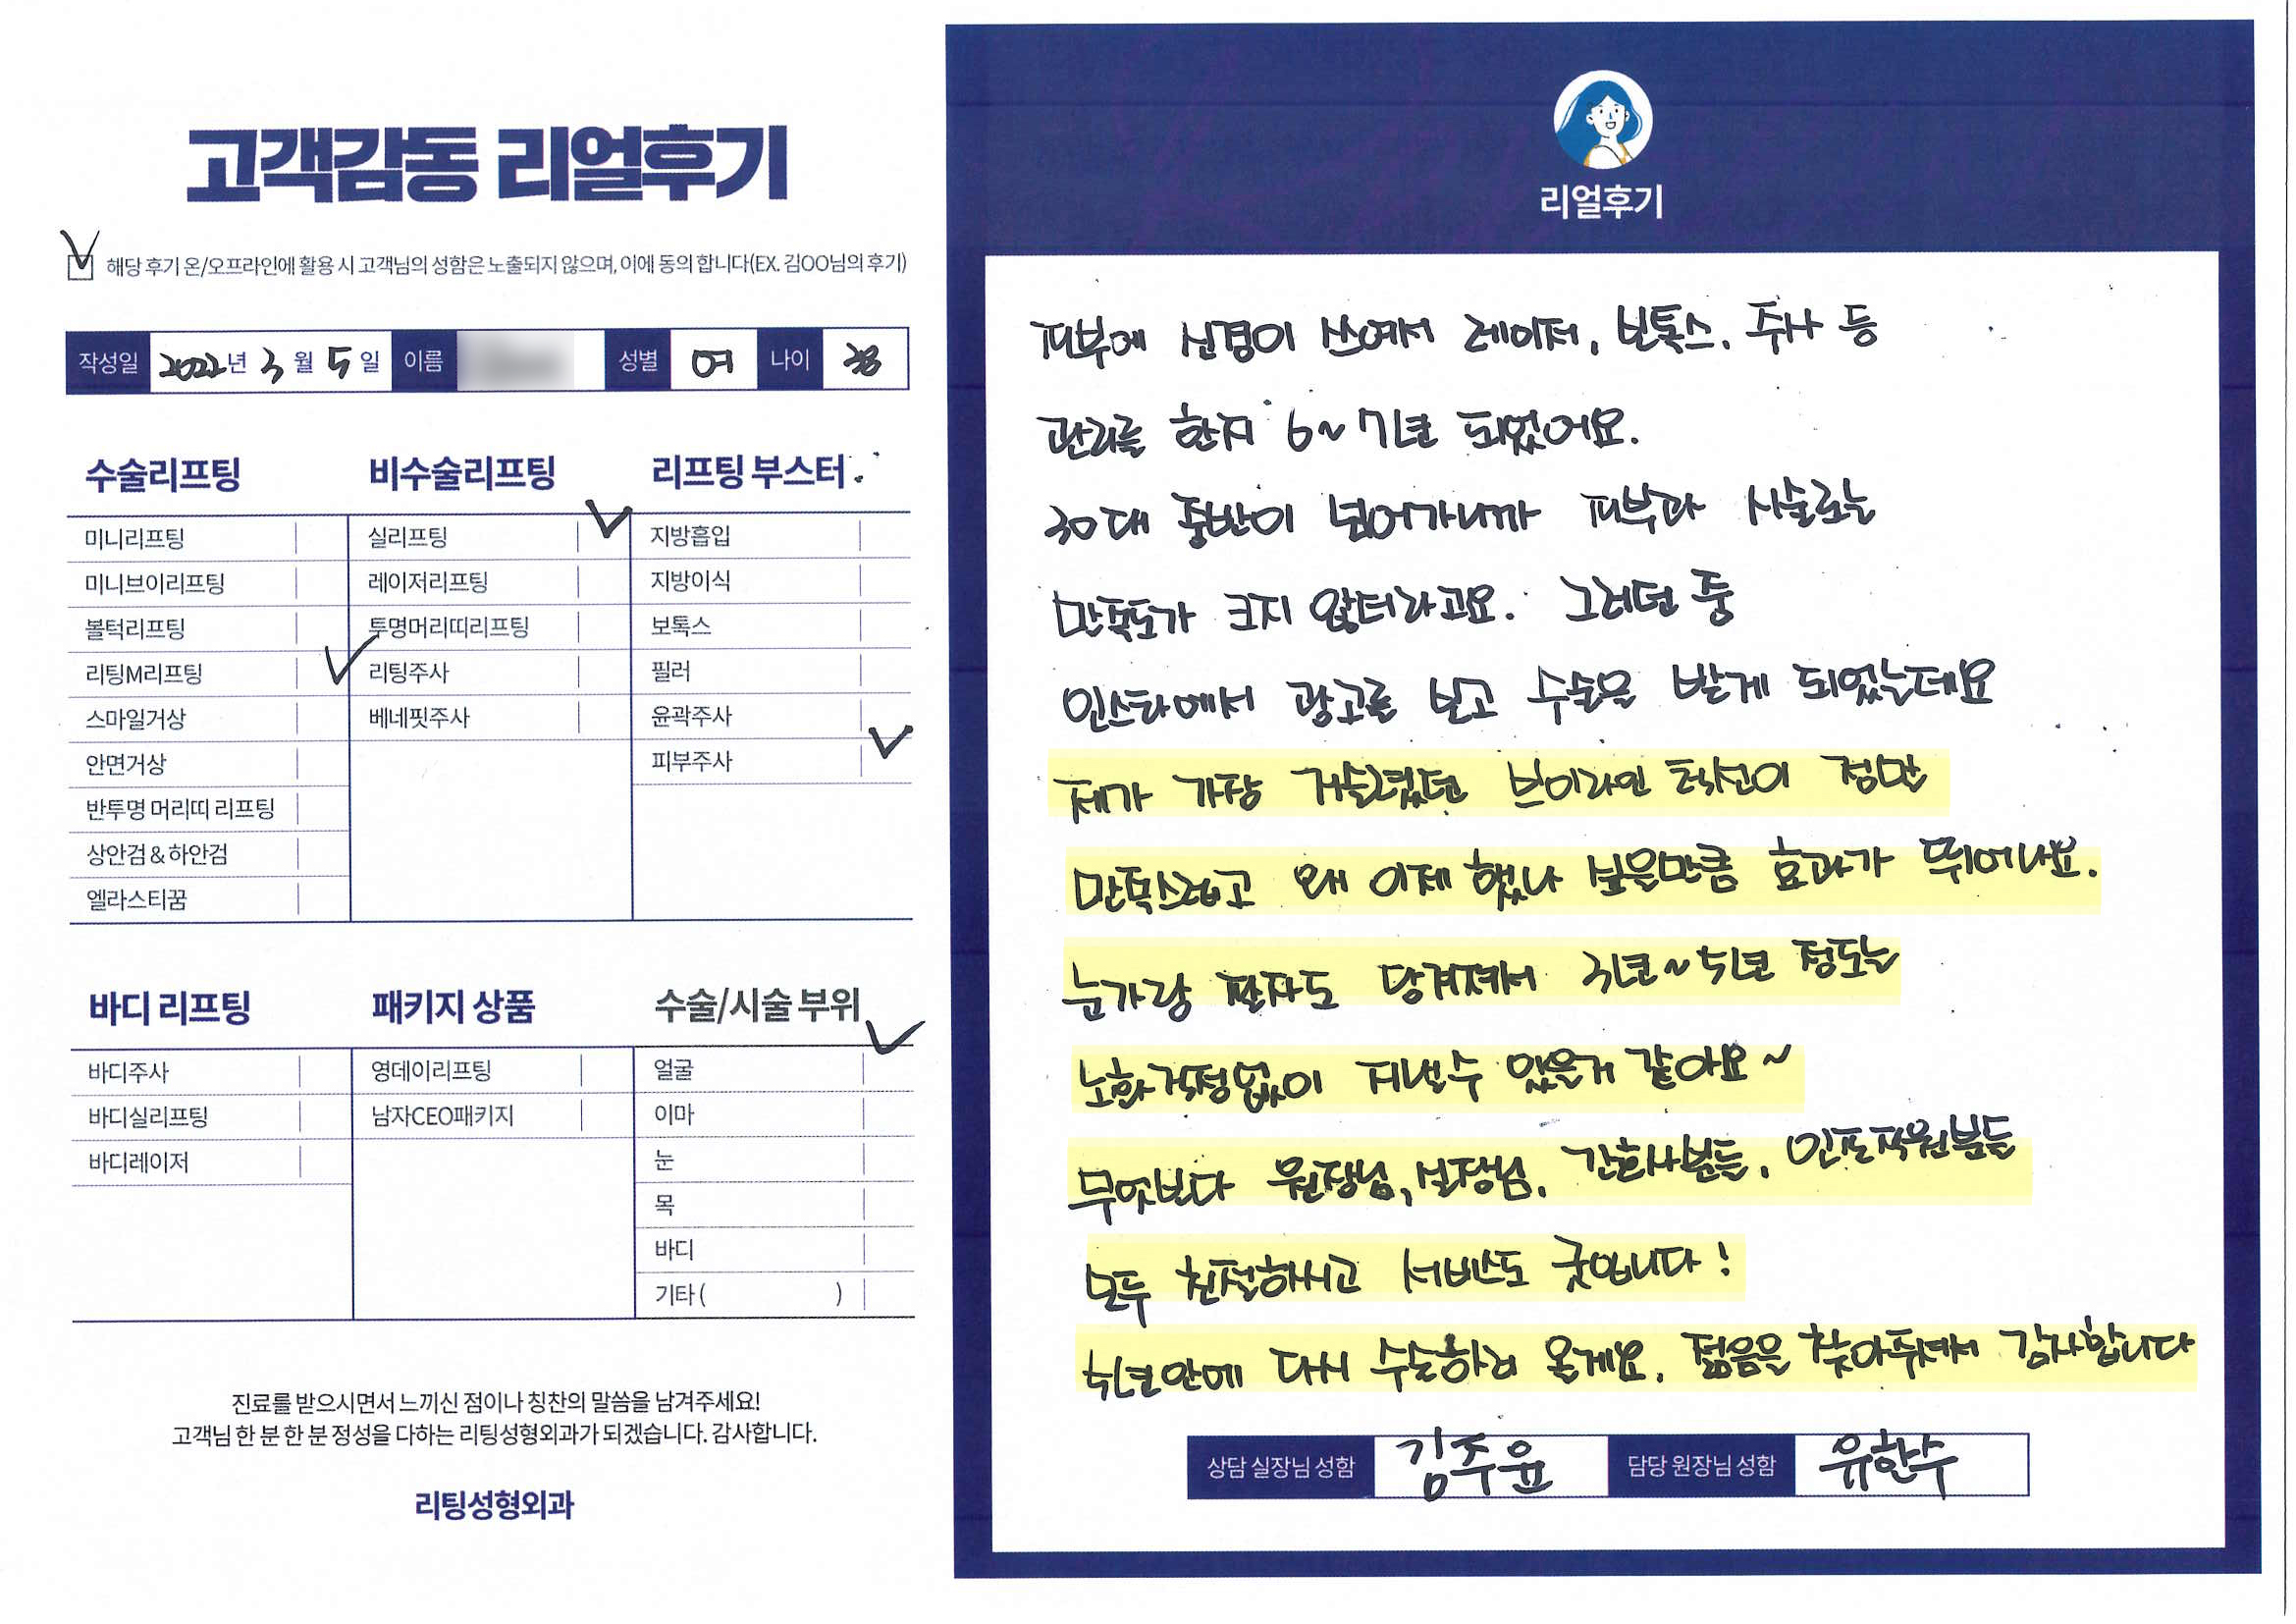 고객감동 리얼후기
해당 후기 온/오프라인에 활용 시 고객님의 성함은 노출되지 않으며, 이에 동의 합니다(EX. 김OO님의 후기)
작성일 2022년 3월 5일 이름 성별 여 나이 38
수술리프팅
미니리프팅
미니브이리프팅
볼턱리프팅
리팅M리프팅
스마일거상
안면거상
반투명 머리띠 리프팅
상안검 & 하안검
엘라스티꿈
비수술리프팅
실리프팅
레이저리프팅
투명머리띠리프팅
리팅주사
베네핏주사
리프팅 부스터
지방흡입
지방이식
보톡스
필러
윤곽주사
피부주사
바디 리프팅
바디주사
바디실리프팅
바디레이저
패키지 상품
영데이리프팅
남자CEO패키지
수술/시술 부위
얼굴
이마
눈
목
바디
기타 ( )
진료를 받으시면서 느끼신 점이나 칭찬의 말씀을 남겨주세요!
고객님 한 분 한 분 정성을 다하는 리팅성형외과가 되겠습니다. 감사합니다.
리팅성형외과
리얼후기
피부에 신경이 쓰여서 레이저, 보톡스, 주사 등
관리를 한지 6~7년 되었어요.
30대 중반이 넘어가니까 피부과 시술로는
만족도가 크지 않더라고요. 그러던 중
인스타에서 광고를 보고 수술을 받게 되었는데요
제가 가장 거슬렸던 브이라인 턱선이 정말
만족스럽고 왜 이제 했나 싶을만큼 효과가 뛰어나요.
눈가랑 팔자도 당겨져서 3년~5년 정도는
노화걱정없이 지낼수 있을거 같아요~
무엇보다 원장님, 실장님, 간호사분들, 인포직원분들
모두 친절하시고 서비스도 굿입니다!
5년안에 다시 수술하러 올게요. 젊음을 찾아줘서 감사합니다
상담 실장님 성함 김주윤 담당 원장님 성함 유한수